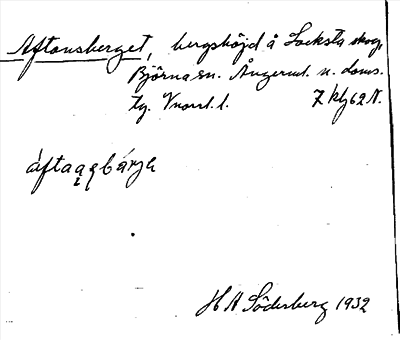 Aftonsberget, bergshöjd å Locksta skog,
Björna sn. Ångerml. n. doms.
tg. Vnorrl. l. 7 klg 62 N.
áftaa̤ɐbárjɐ
H A Söderberg 1932